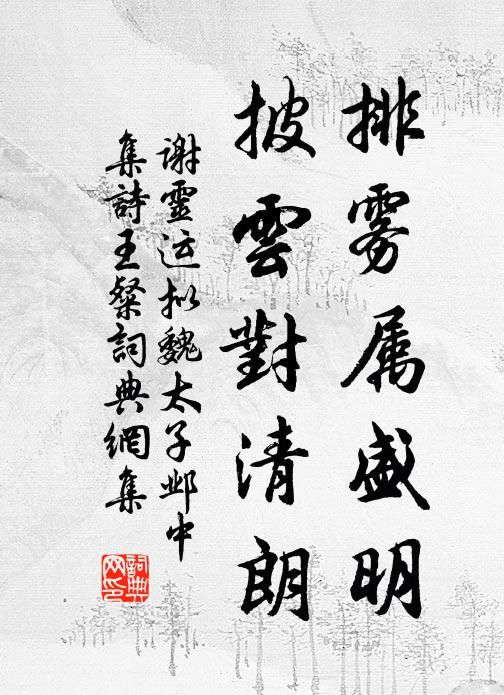 排雾属盛明
披雲對清朗
謝靈运拟魏太子邺中
集詩王粲詞典網集
詞典
网印